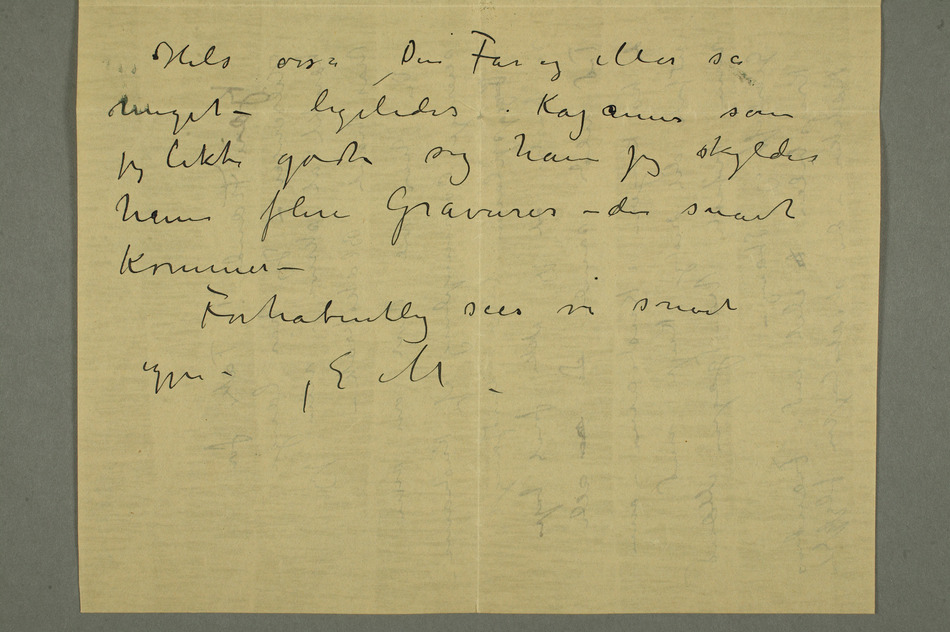 Hils osså Din Far og Mor så
meget – ligeledes . Kajanus som
jeg likte godt sig ham jeg skylder
ham flere Gravurer – der snart
kommer –
Forhåbentlig sees vi snart
igjen – E M –